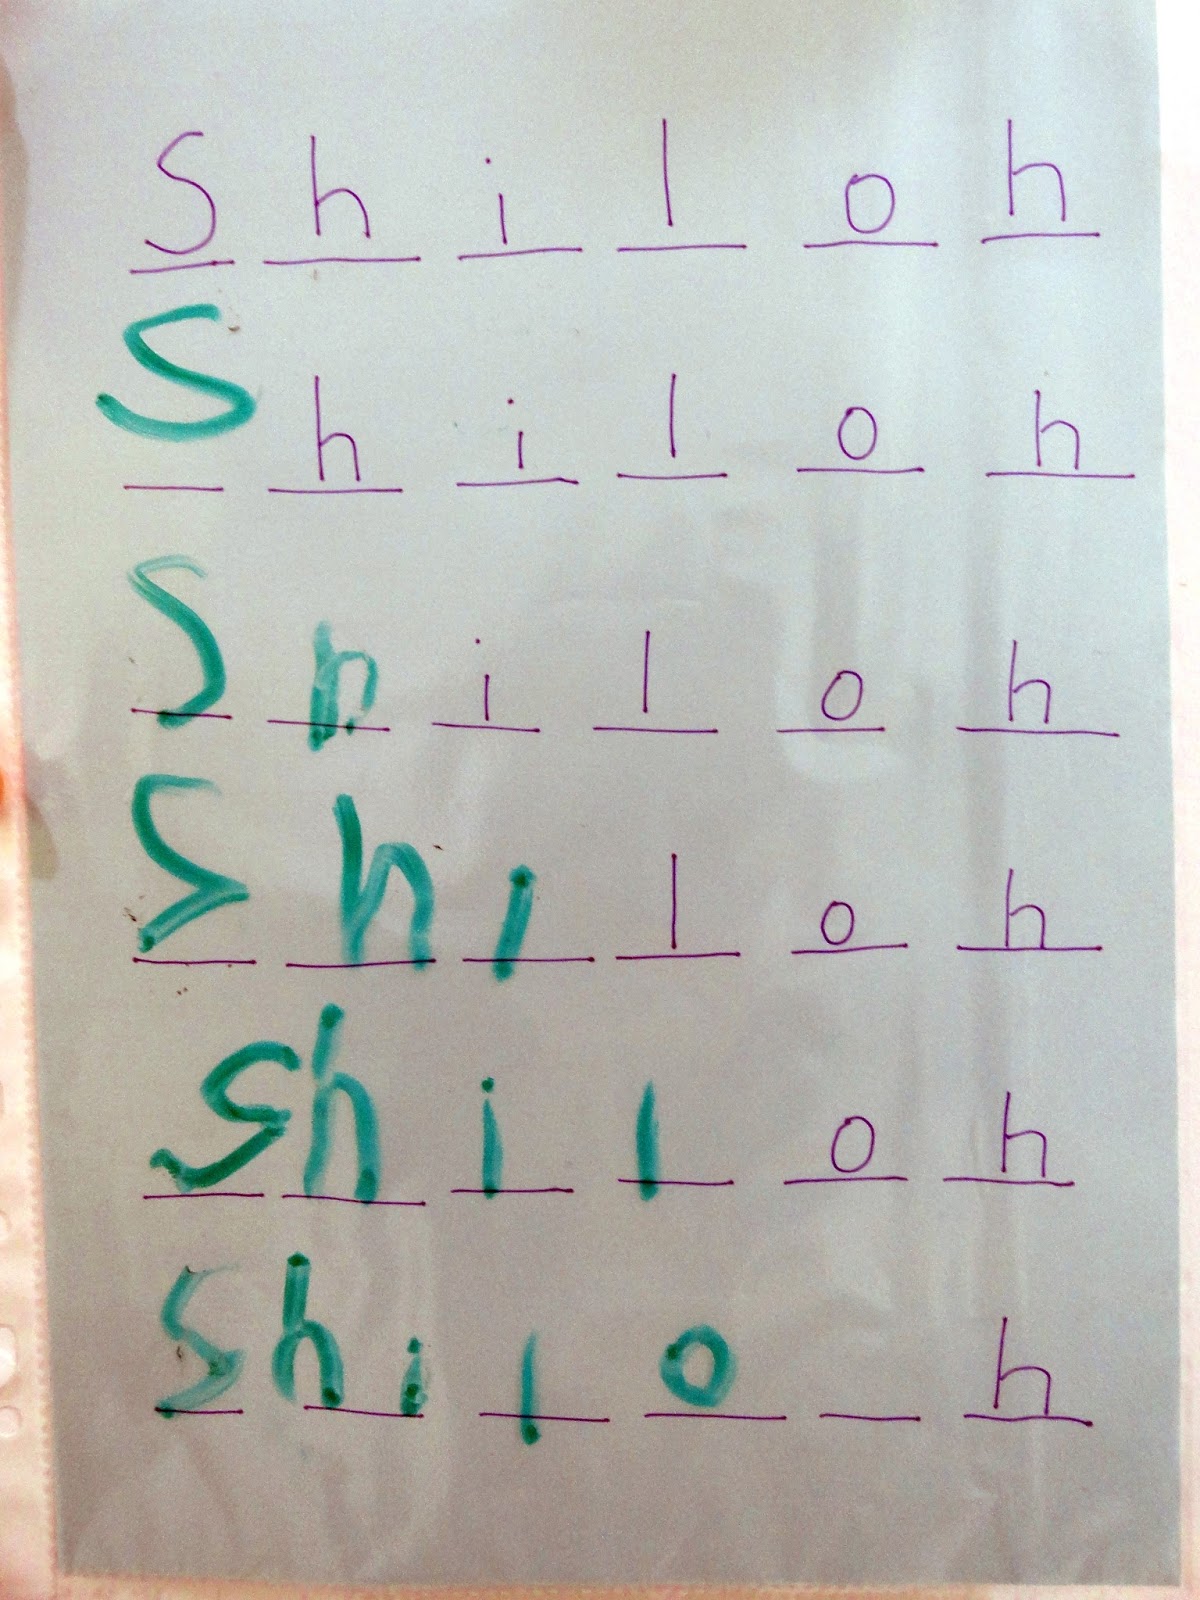 Shiloh
Shiloh
Shiloh
Shiloh
Shiloh
Shilo_h